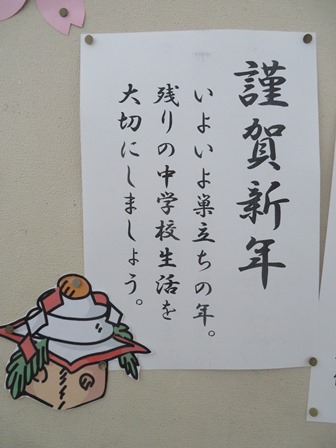 謹賀新年
いよいよ巣立ちの年。
残りの中学校生活を
大切にしましょう。